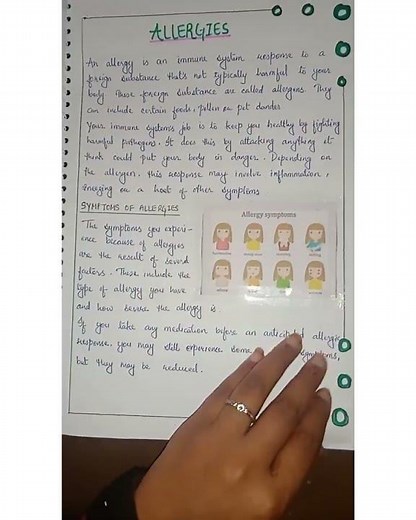 ALLERGIES
An allergy is an immune system response to a
foreign substance that's not typically harmful to your
body These foreign substance are called allergens. They
can include certain foods, pollen or pet dander
Your immune systems job is to keep you healthy by fighting
harmful pathogens. It does this by attacking anything it
think could put your body in danger. Depending on
the allergen, this response may involve inflammation,
sneezing or a host of other symptoms
SYMPTOMS OF ALLERGIES
The symptoms you experi-
ence because of allergies
are the result of several
factors. These include the
type of allergy you have
and how severe the allergy is.
Allergy symptoms
If you take any medication before an allergic
response, you may still experience some symptoms,
but they may be reduced.